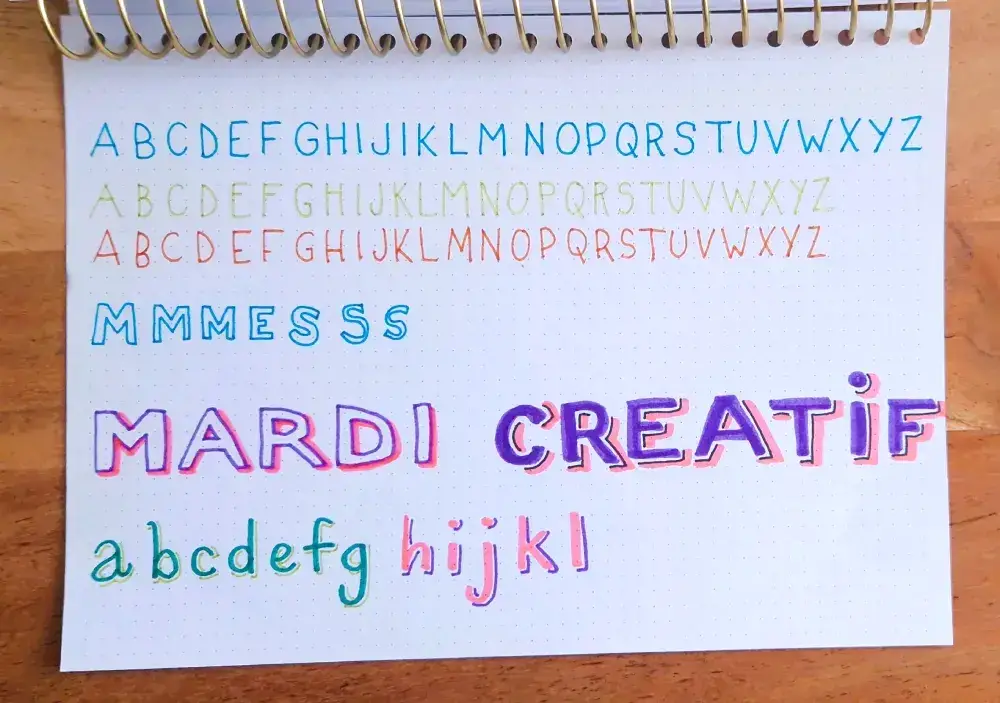 A B C D E F G H I J I K L M N O P Q R S T U V W X Y Z
A B C D E F G H I J K L M N O P Q R S T U V W X Y Z
A B C D E F G H I J K L M N O P Q R S T U V W X Y Z
M M M E S S S
MARDI CREATiF
a b c d e f g h i j k l